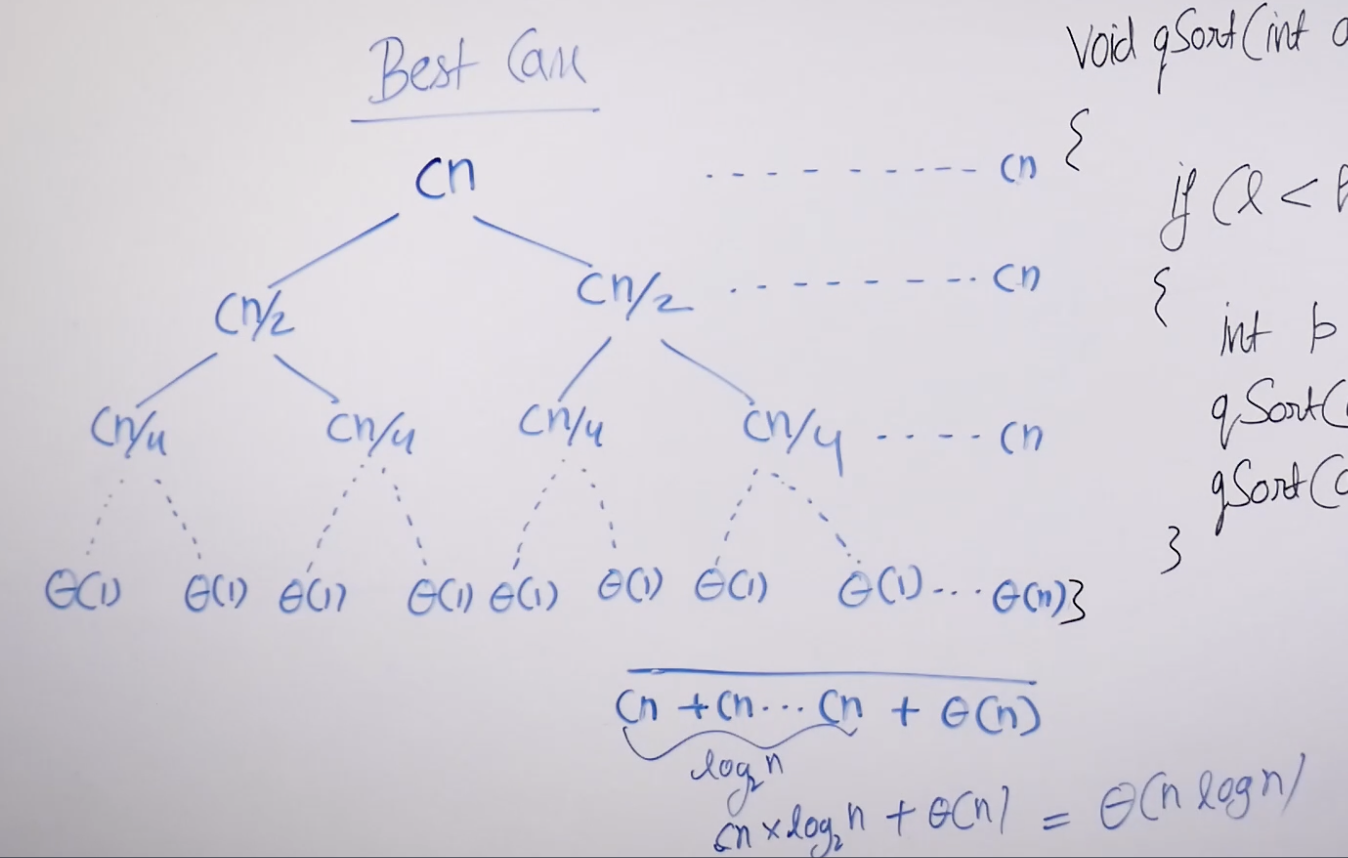 Best Case
Cn - - - - - - - - - Cn
Cn/2 Cn/2 - - - - - - - - Cn
Cn/4 Cn/4 Cn/4 Cn/4 - - - - Cn
Θ(1) Θ(1) Θ(1) Θ(1) Θ(1) Θ(1) Θ(1) Θ(1) ... Θ(n)
Cn + Cn ... Cn + Θ(n)
log₂n
Cn × log₂n + Θ(n) = Θ(n log n)
void qSort(int a
{
if (l <
{
int p
qSort(
qSort(
}
}